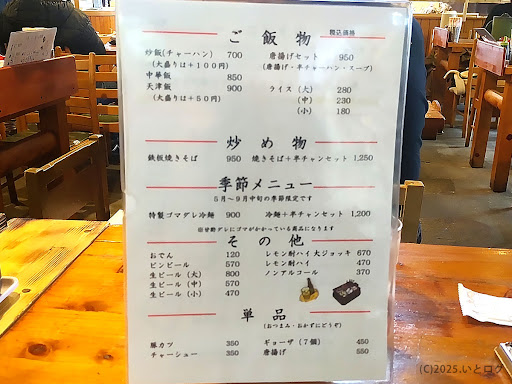 ご飯物 税込価格
炒飯(チャーハン) 700
(大盛りは+100円)
中華飯 850
天津飯 900
(大盛りは+50円)
唐揚げセット 950
(唐揚げ・半チャーハン・スープ)
ライス (大) 280
(中) 230
(小) 180
炒め物
鉄板焼きそば 950 焼きそば+半チャンセット 1,250
季節メニュー
5月〜9月中旬の季節限定です
特製ゴマダレ冷麺 900 冷麺+半チャンセット 1,200
ダレにゴマがかかっている商品になります
その他
おでん 120
ビンビール 570
生ビール (大) 800
生ビール (中) 570
生ビール (小) 470
レモン酎ハイ 大ジョッキ 670
レモン酎ハイ 470
ノンアルコール 370
単品
(おつまみ・おかずにどうぞ)
豚カツ 350
チャーシュー 350
ギョーザ (7個) 450
唐揚げ 550
(C)2025.いとログ